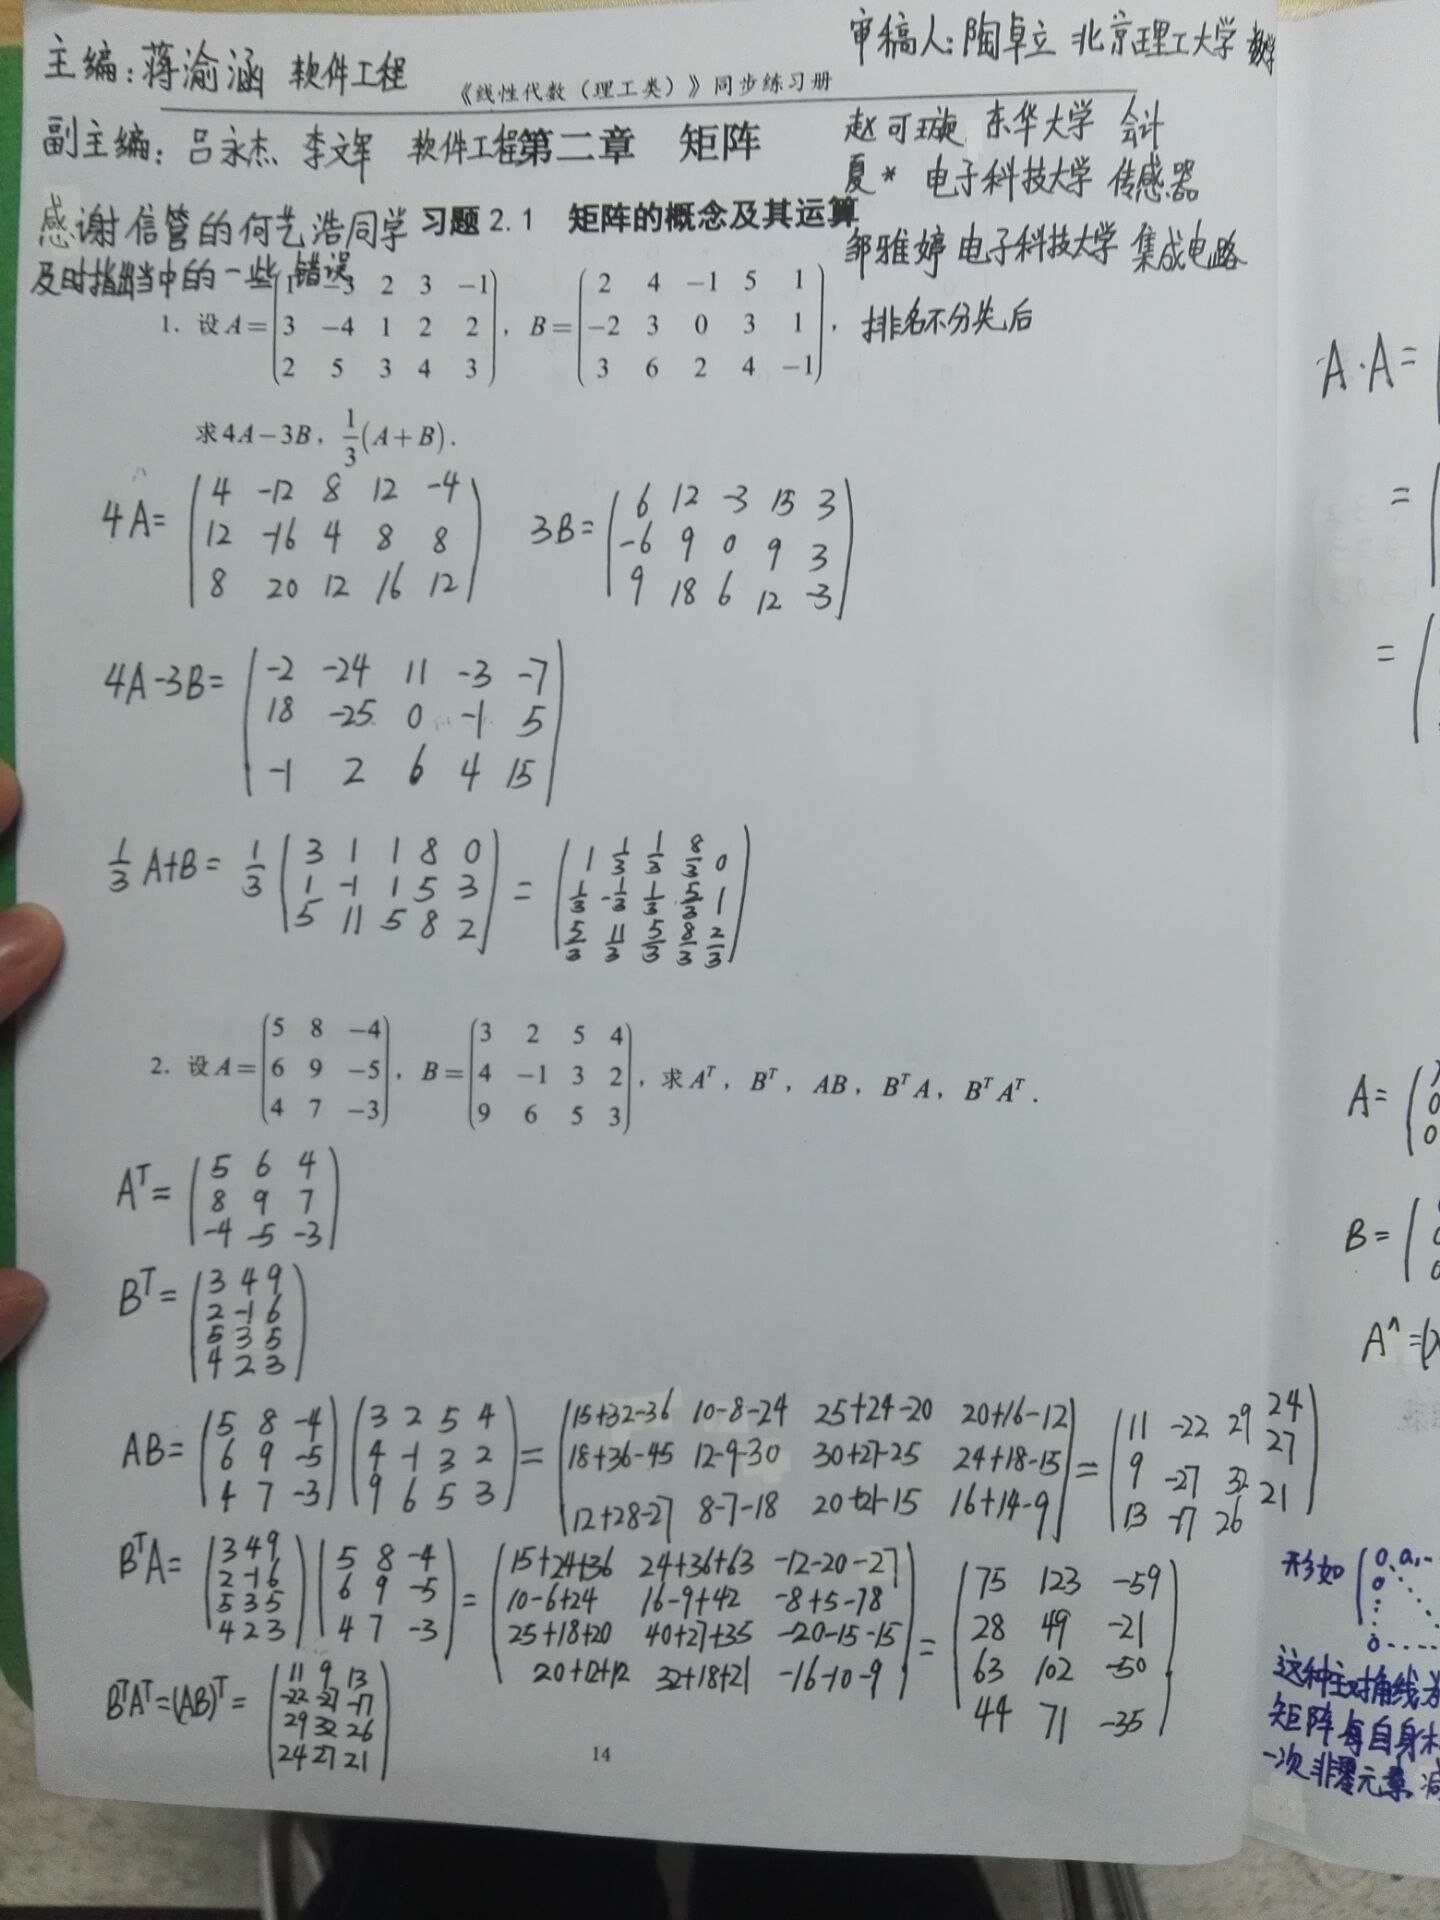 主编：蒋渝涵 软件工程
审稿人：陶卓立 北京理工大学
《线性代数（理工类）》同步练习册
副主编：吕永杰 李文军 软件工程
第二章 矩阵
赵可璇 东华大学 会计
夏* 电子科技大学 传感器
感谢信管的何艺浩同学
习题 2.1 矩阵的概念及其运算
邹雅婷 电子科技大学 集成电路
及时指出当中的一些错误
排名不分先后
1. 设A=(1 -3 2 3 -1
3 -4 1 2 2
2 5 3 4 3), B=(2 4 -1 5 1
-2 3 0 3 1
3 6 2 4 -1),
求4A-3B, 1/3(A+B).
4A=(4 -12 8 12 -4
12 -16 4 8 8
8 20 12 16 12)
3B=(6 12 -3 15 3
-6 9 0 9 3
9 18 6 12 -3)
4A-3B=(-2 -24 11 -3 -7
18 -25 0 -1 5
-1 2 6 4 15)
1/3 A+B= 1/3 (3 1 1 8 0
1 -1 1 5 3
5 11 5 8 2)
= (1 1/3 1/3 8/3 0
1/3 -1/3 1/3 5/3 1
5/3 11/3 5/3 8/3 2/3)
2. 设A=(5 8 -4
6 9 -5
4 7 -3), B=(3 2 5 4
4 -1 3 2
9 6 5 3), 求Aᵀ, Bᵀ, AB, BᵀA, BᵀAᵀ.
Aᵀ=(5 6 4
8 9 7
-4 -5 -3)
Bᵀ=(3 4 9
2 -1 6
5 3 5
4 2 3)
AB=(5 8 -4
6 9 -5
4 7 -3)
(3 2 5 4
4 -1 3 2
9 6 5 3)
=(15+32-36 10-8-24 25+24-20 20+16-12
18+36-45 12-9-30 30+27-25 24+18-15
12+28-27 8-7-18 20+21-15 16+14-9)
=(11 -22 29 24
9 -27 32 27
13 -17 26 21)
BᵀA=(3 4 9
2 -1 6
5 3 5
4 2 3)
(5 8 -4
6 9 -5
4 7 -3)
=(15+24+36 24+36+63 -12-20-27
10-6+24 16-9+42 -8+5-18
25+18+20 40+27+35 -20-15-15
20+12+12 32+18+21 -16-10-9)
=(75 123 -59
28 49 -21
63 102 -50
44 71 -35)
BᵀAᵀ=(AB)ᵀ=(11 9 13
-22 -27 -17
29 32 26
24 27 21)
14
A·A=
=
=
A=(
0
0
B=(
A^=(
形如
这种主对角线为
矩阵每自身
一次非零元素